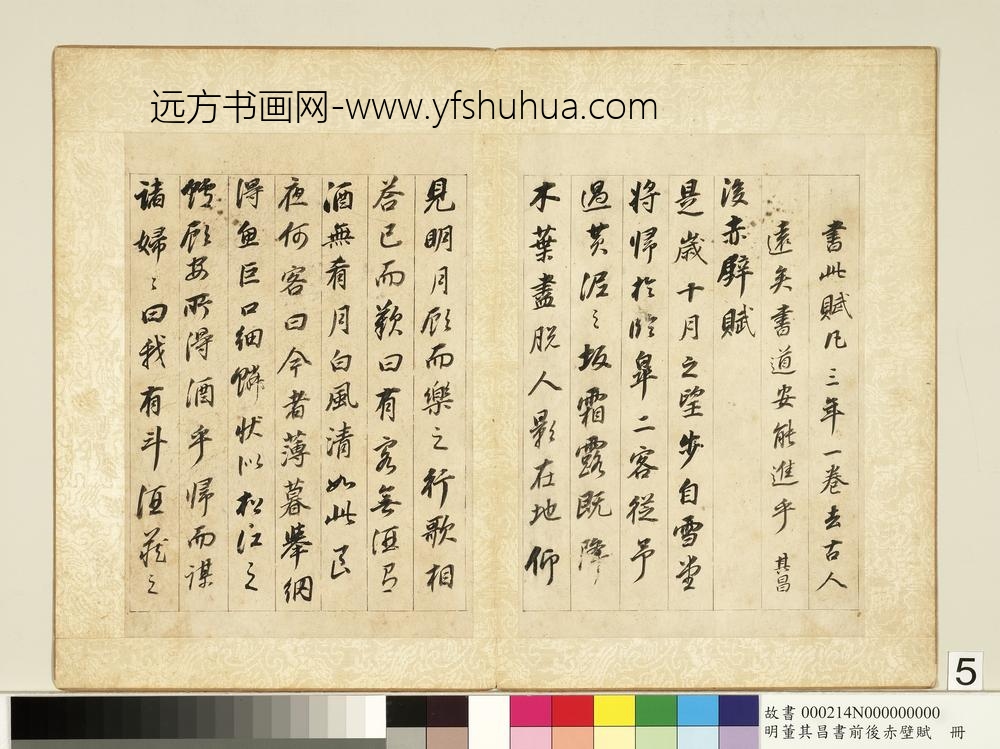 远方书画网-www.yfshuhua.com
書此賦凡三年一卷去古人
遠矣書道安能進乎 其昌
後赤壁賦
是歲十月之望步自雪堂
將歸於臨皐二客從予
過黃泥〻坂霜露既降
木葉盡脫人影在地仰
見明月顧而樂之行歌相
荅已而歎曰有客無酒有
酒無肴月白風清如此良
夜何客曰今者薄暮舉網
得魚巨口細鱗狀似松江之
鱸顧安所得酒乎歸而謀
諸婦〻曰我有斗酒藏之
5
故書 000214N000000000
明董其昌書前後赤壁賦 冊